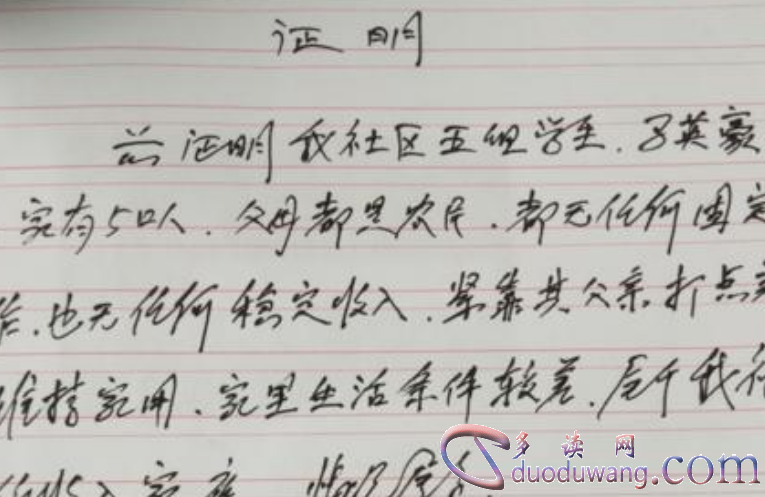 证明
兹证明我社区五组学生.子英豪
家有5口人.父母都是农民.都无任何固定
.也无任何稳定收入.紧靠其父亲打点
维持家用.家里生活条件较差.属于我社
低收入家庭 情况属实.
多读网
duoduwang.com